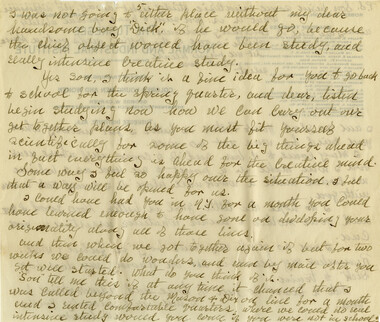 I was not going to either place without my dear
handsome boy "Dick" if he would go, because
the chief object would have been study, and
really intensive creative study.
Yes Son, I think it a fine idea for you to go back
to school for the spring quarter, and dear, listen
begin studying now how we can carry out our
get together plans, as you must fit yourself
scientifically for some of the big things ahead
in fact everything is ahead for the creative mind.
Some way I feel so happy over the situation, I feel
that a way will be opened for us.
I could have had you in N.Y. for a month you could
have learned enough to have gone on developing your
originality along all of those lines.
and then when we get together again if but for two
weeks we could do wonders, and even by mail after you
get well started. What do you think of it.
Son tell me this if at any time it chanced that I
was called beyond the Mason & Dixon line for a month
and I rented comfortable quarters, where we could do real
intensive study would you come if you were not in school